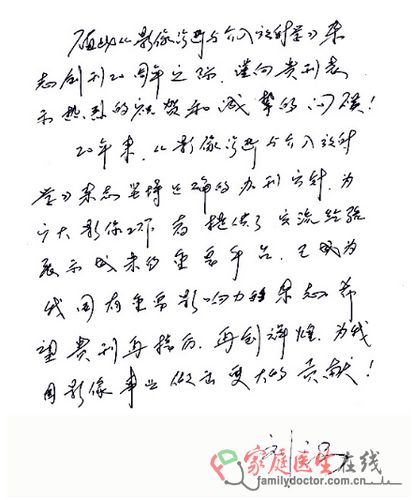 值此《影像诊断与介入放射学》杂
志创刊20周年之际，谨向贵刊表
示热烈的祝贺和诚挚的问候！
20年来，《影像诊断与介入放射
学》杂志坚持正确的办刊方针，为
广大影像工作者提供了交流经验
展示成果的重要平台，已成为
我国有重要影响力的杂志。希
望贵刊再接厉，再创辉煌，为我
国影像事业做出更大的贡献！
刘
家庭医生在线
familydoctor.com.cn